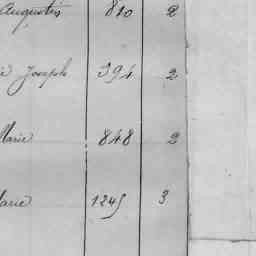 Augustin 810 2
ie Joseph 394 2
Marie 848 2
Marie 1245 3